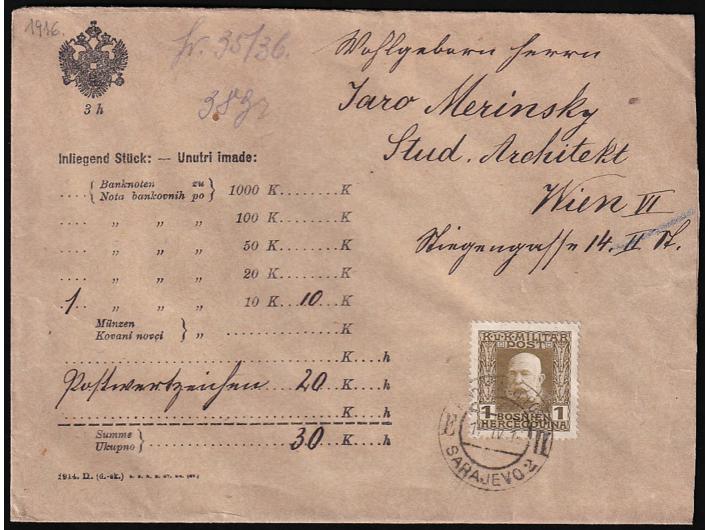 1916.
3 h
fr. 35/36.
38 gr
Wohlgeborn Herrn
Jaro Merinsky
Stud. Architekt
Wien VI
Stiegengasse 14. II St.
Inliegend Stück: — Unutri imade:
.... { Banknoten zu
Nota bankovnih po } 1000 K........K
.... „ „ „ 100 K........K
.... „ „ „ 50 K........K
.... „ „ „ 20 K........K
.1.. „ „ „ 10 K...10...K
Münzen
Kovani novci } „ ................K
................................K.....h
Postwertzeichen 20 K.....h
Summe
Ukupno } ............30..K.....h
1914. II. (d.-sk.)
K.u.K. MILITÄR
POST
1 BOSNIEN 1
HERCEGOVINA
SARAJEVO 2